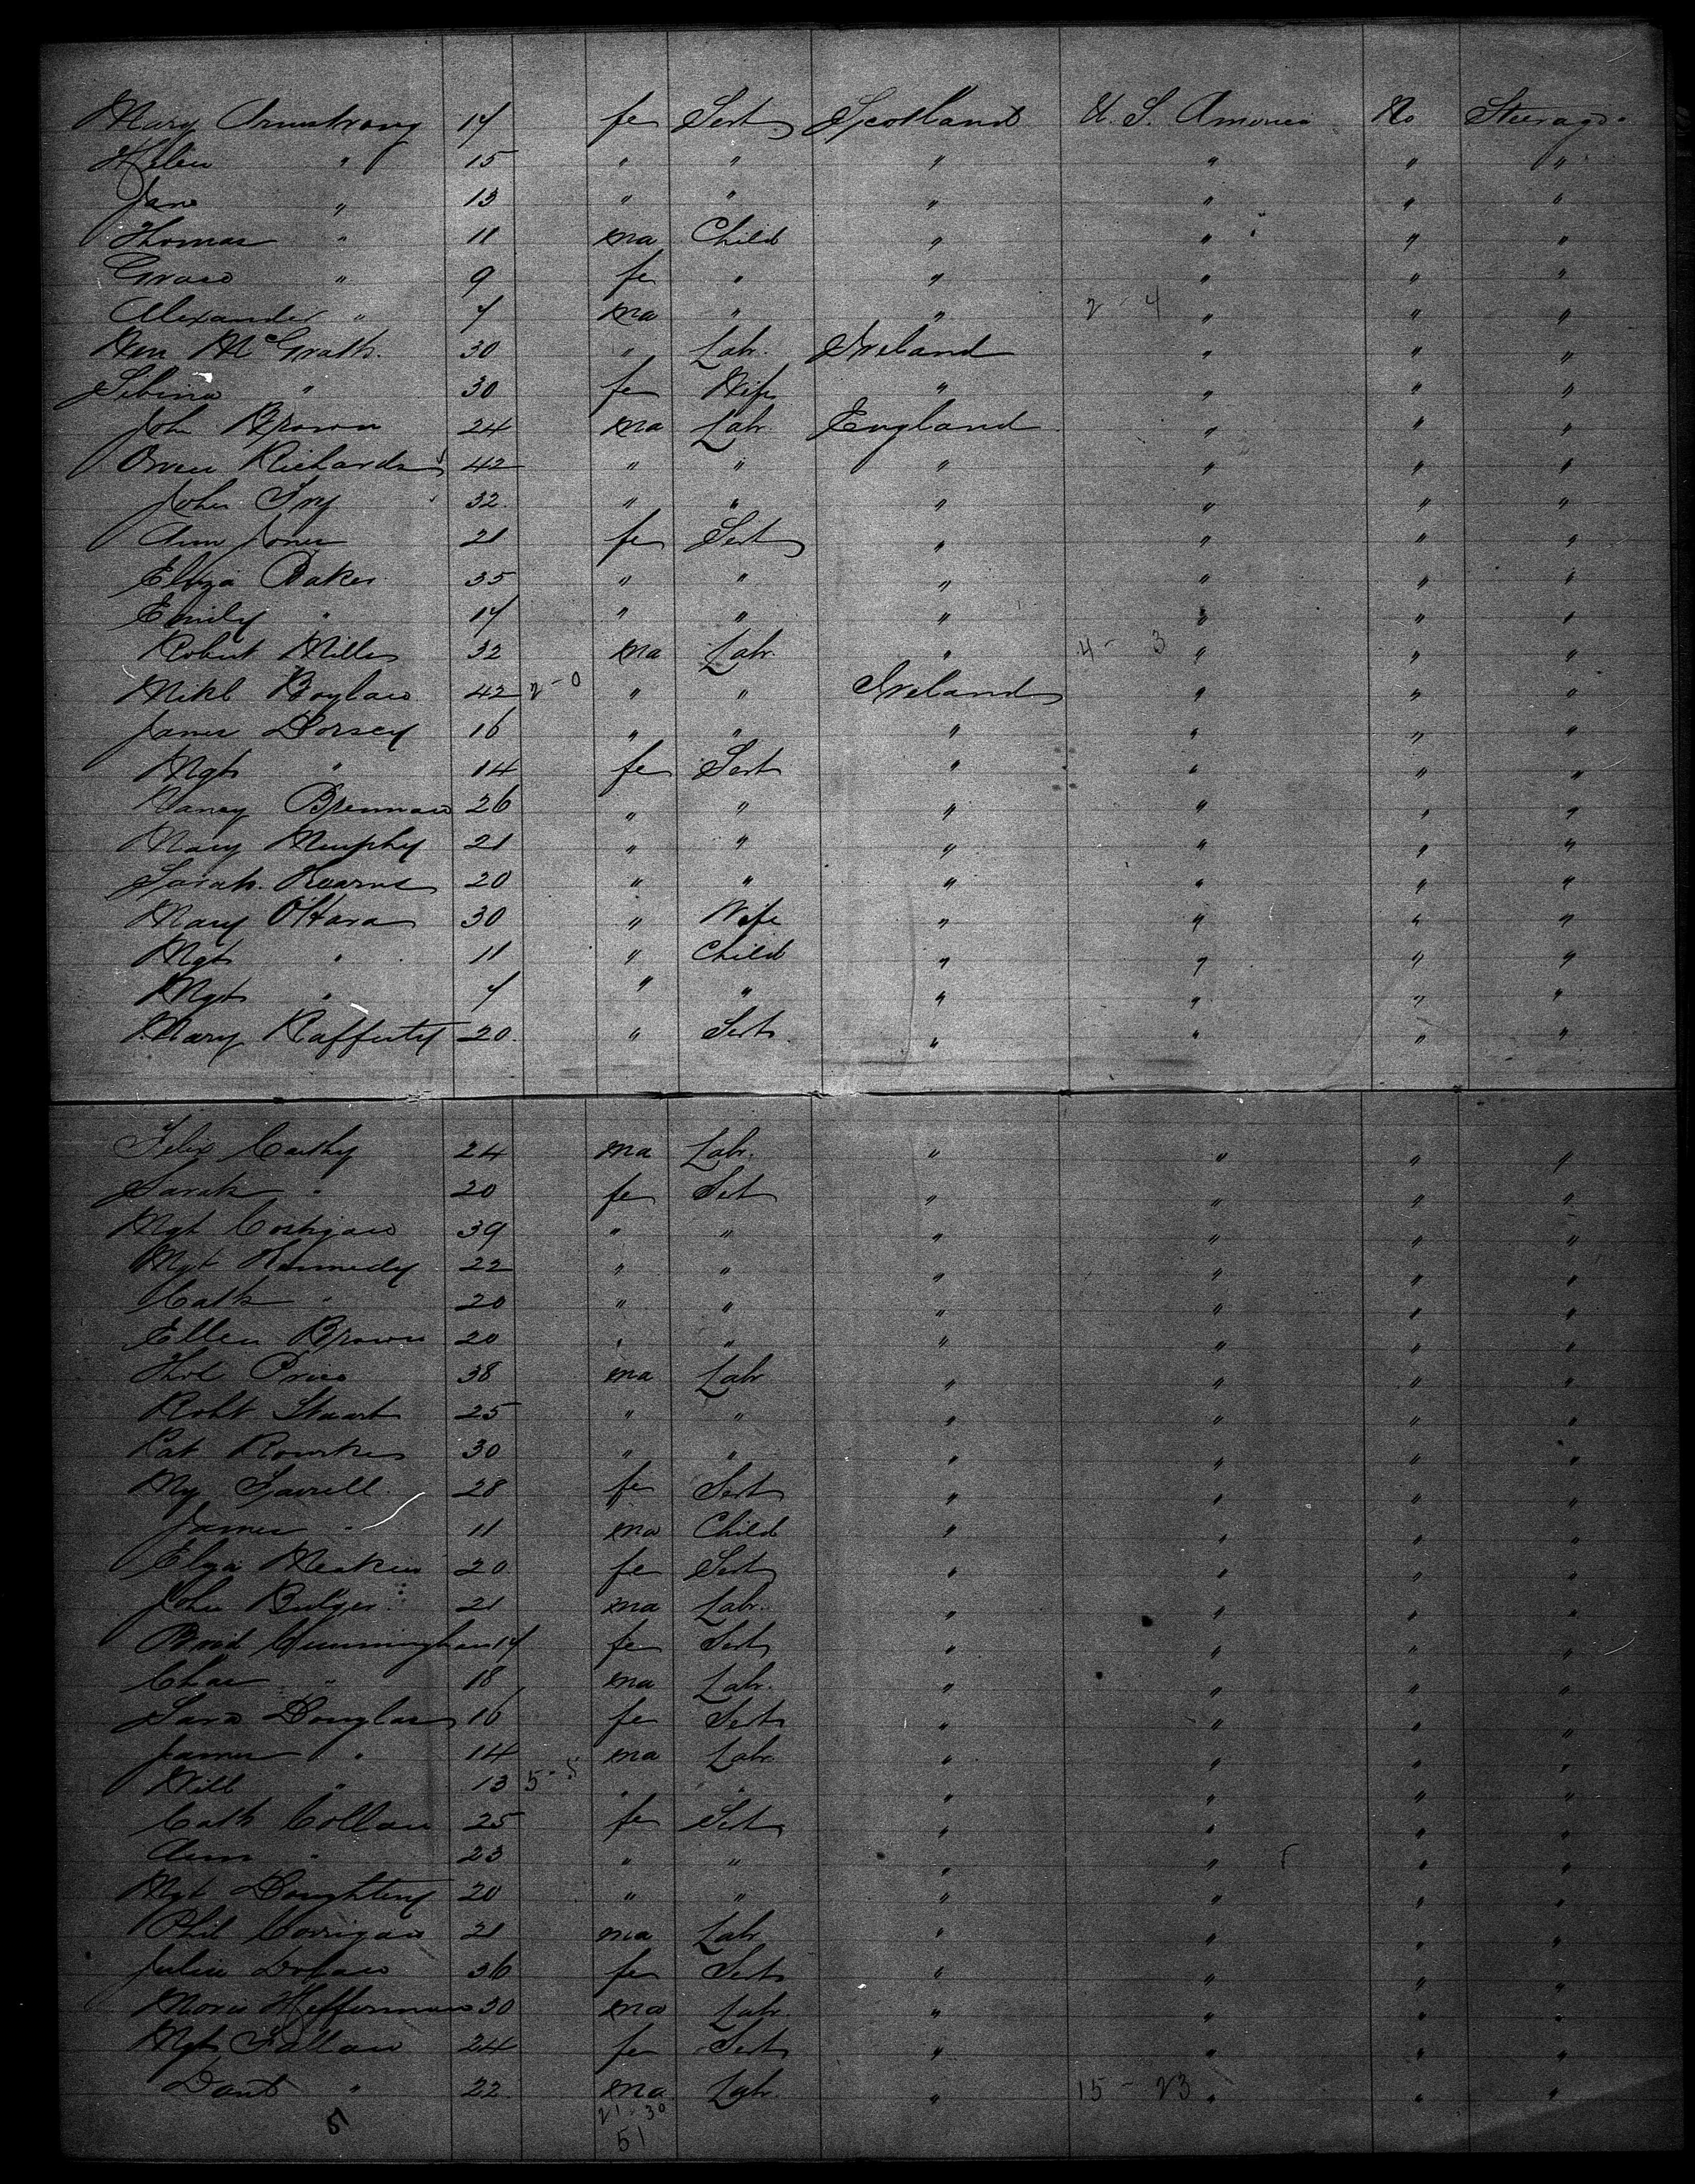 Mary Armstrong 17 fe Sert Scotland U. S. America No Steerage.
Helen " 15 " " " " " "
Jane " 13 " " " " " "
Thomas " 11 ma Child " " " "
Grace " 9 fe " " " " "
Alexander " 7 ma " " 2 - 4 " " "
McGrath 30 " Labr. Ireland " " "
Sebina " 30 fe Wife " " " "
John Brown 24 ma Labr. England " " "
Owen Richards 42 " " " " " "
John Ivy 32 " " " " " "
Ann Jones 21 fe Sert " " " "
Eliza Baker 35 " " " " " "
Emily " 17 " " " " " "
Robert Miller 32 ma Labr. " 4 - 3 " " "
Mikl Boylan 42 2 - 0 " " Ireland " " "
James Dorsey 16 " " " " " "
Mgt " 14 fe Sert " " " "
Nancy Brennan 26 " " " " " "
Mary Murphy 21 " " " " " "
Sarah Kearns 20 " " " " " "
Mary O'Hara 30 " Wife " " " "
Mgt " 11 " Child " " " "
Mgt " 7 " " " " " "
Mary Rafferty 20 " Sert " " " "
Felix Carthy 24 ma Labr. " " " "
Sarah " 20 fe Sert " " " "
Mgt Costigan 39 " " " " " "
Mgt Kennedy 22 " " " " " "
Cath " 20 " " " " " "
Ellen Brown 20 " " " " " "
Price 38 ma Labr " " " "
Robt Stuart 25 " " " " " "
Pat Rourke 30 " " " " " "
My Farrell 28 fe Sert " " " "
James " 11 ma Child " " " "
Eliza Meakin 20 fe Sert " " " "
John Bulger 21 ma Labr. " " " "
Brid Cunningham 17 fe Sert " " " "
Chas " 18 ma Labr. " " " "
Sara Douglas 16 fe Sert " " " "
James " 14 ma Labr " " " "
Will " 13 5 - 5 " " " " " "
Cath Collan 25 fe Sert " " " "
Ann " 23 " " " " " "
Mgt Doughterty 20 " " " " " "
Phil Corrigan 21 ma Labr " " " "
Julia Dolan 36 fe Sert " " " "
Heffernan 30 ma Labr. " " " "
Mgt Fallon 24 fe Sert " " " "
Danl " 22 ma Labr. " 15 - 23 " " "
51 21 . 30
51